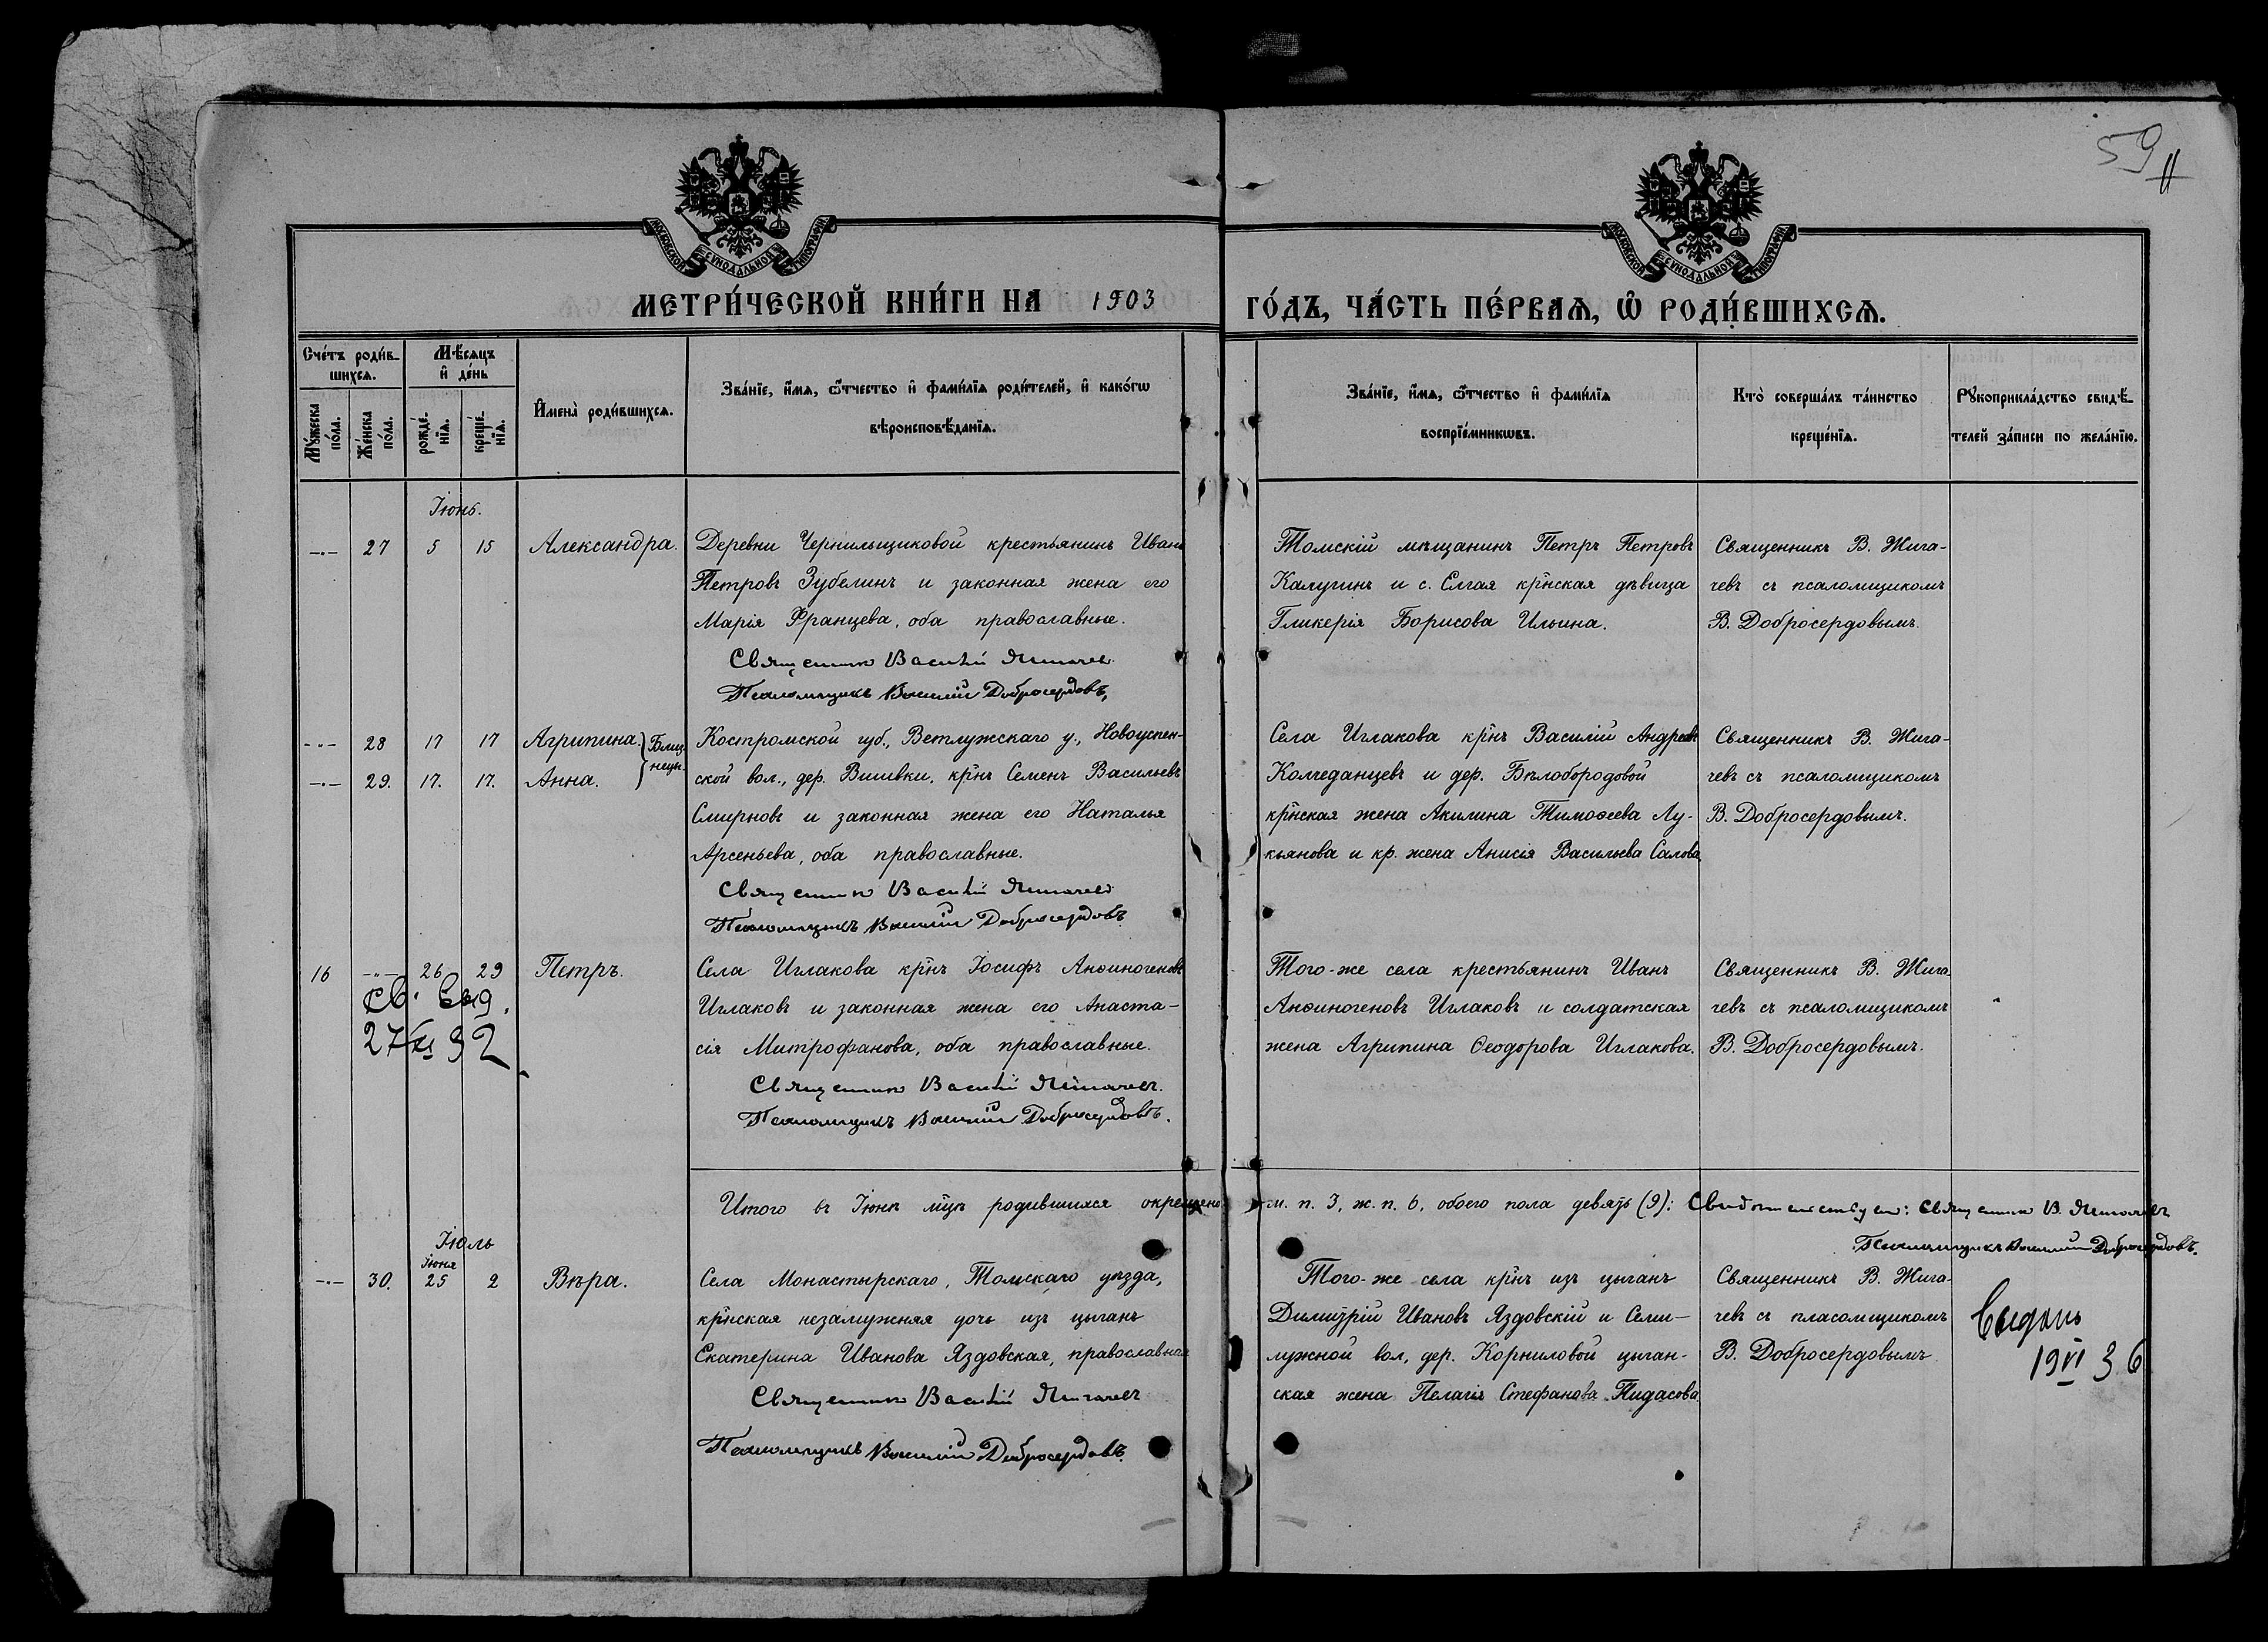 59
МОСКОВСКОЙ СѴНОДАЛЬНОЙ ТИПОГРАФІИ
МОСКОВСКОЙ СѴНОДАЛЬНОЙ ТИПОГРАФІИ
МЕТРИ́ЧЕСКОЙ КНИ́ГИ НА 1903 ГО́ДЪ, ЧА́СТЬ ПЕ́РВАѦ, Ѡ҆ РОДИ́ВШИХСѦ.
Сче́тъ роди́в-
шихсѧ.
Мѣ́сѧцъ
и҆ де́нь
Мꙋ́жеска
по́ла.
Же́нска
по́ла.
рожде́-
нїѧ.
креще́-
нїѧ.
И҆мена̀ роди́вшихсѧ.
Зва́нїе, и҆́мѧ, ѻ҆́тчество и҆ фами́лїѧ роди́телей, и҆ како́гѡ
вѣроисповѣ́данїѧ.
Зва́нїе, и҆́мѧ, ѻ҆́тчество и҆ фами́лїѧ
воспрїе́мникѡвъ.
Кто̀ соверша́лъ та́инство
креще́нїѧ.
Рꙋкоприкла́дство свидѣ́-
телей за́писи по жела́нїю.
Іюнь.
-.- 27 5 15 Александра. Деревни Чернильщиковой крестьянинъ Иванъ
Петровъ Зубелинъ и законная жена его
Марія Францева, оба православные.
Священникъ Василій Жигачевъ
Псаломщикъ Василій Добросердовъ.
Томскій мѣщанинъ Петръ Петровъ
Калугинъ и с. Елгая кр̃нская дѣвица
Гликерія Борисова Ильина.
Священникъ В. Жига-
чевъ съ псаломщикомъ
В. Добросердовымъ.
-"- 28 17 17 Агрипина. Близ-
-.- 29. 17. 17. Анна. нецы.
Костромской губ., Ветлужскаго у., Новоуспен-
ской вол., дер. Вишвки, кр̃нъ Семенъ Васильевъ
Смирновъ и законная жена его Наталья
Арсеньева, оба православные.
Священникъ Василій Жигачевъ
Псаломщикъ Василій Добросердовъ.
Села Иглакова кр̃нъ Василій Андреевъ
Колчеданцевъ и дер. Бѣлобородовой
кр̃нская жена Акилина Тимоѳеева Лу-
кьянова и кр. жена Анисія Васильева Салова
Священникъ В. Жига-
чевъ съ псаломщикомъ
В. Добросердовымъ.
16 -"- 26 29 Петръ.
Св. выд.
27 XI 32
Села Иглакова кр̃нъ Іосифъ Анѳиногеновъ
Иглаковъ и законная жена его Анаста-
сія Митрофанова, оба православные.
Священникъ Василій Жигачевъ.
Псаломщикъ Василій Добросердовъ.
Того-же села крестьянинъ Иванъ
Анѳиногеновъ Иглаковъ и солдатская
жена Агрипина Ѳеодорова Иглакова.
Священникъ В. Жига-
чевъ съ псаломщикомъ
В. Добросердовымъ.
Итого въ Іюнѣ м̃цѣ родившихся окрещено: м. п. 3, ж. п. 6, обоего пола девять (9): Свидѣтельствуемъ: Священникъ В. Жигачевъ
Псаломщикъ Василій Добросердовъ.
Іюль
Іюня
-.- 30. 25 2 Вѣра.
Села Монастырскаго, Томскаго уѣзда,
кр̃нская незамужняя дочь изъ цыганъ
Екатерина Иванова Яздовская, православная
Священникъ Василій Жигачевъ
Псаломщикъ Василій Добросердовъ.
Того-же села кр̃нъ изъ цыганъ
Димитрій Ивановъ Яздовскій и Семи-
лужной вол, дер. Корниловой цыган-
ская жена Пелагія Стефанова Пидасова
Священникъ В. Жига-
чевъ съ пласомщикомъ
В. Добросердовымъ
Выдань
19 VI 36